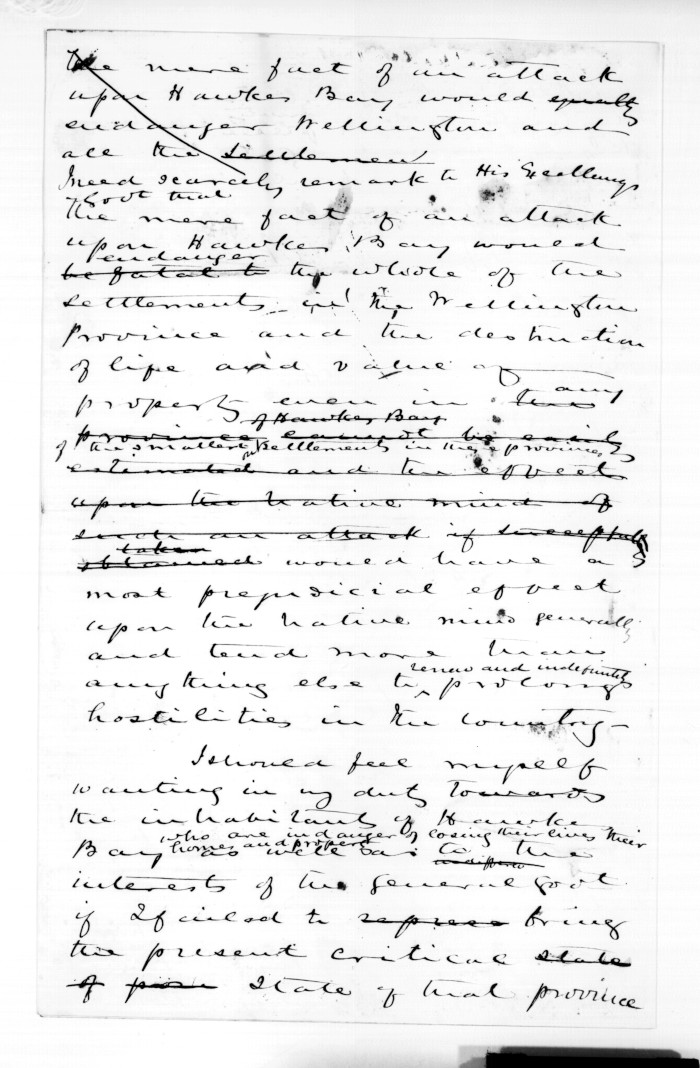 The mere fact of an attack
upon Hawkes Bay would equally
endanger Wellington and
all the Settlemen
I need scarcely remark to His Excellency
Govt that
the mere fact of an attack
upon Hawkes Bay would
endanger
be fatal to the whole of the
settlements in the Wellington
Province and the destruction
of life and value of
any
property even in this
of Hawkes Bay
province cannot be easily
of the smallest settlements in these provinces
estimated and the effect
upon the Native mind of
such an attack if successfully
taken
obtained would have a
most prejudicial effect
upon the Native mind generally
and tend more than
renew and indefinitely
anything else to prolong
hostilities in the country –
I should feel myself
wanting in my duty towards
the inhabitants of Hawke
who are in danger of losing their lives their
homes and property
Bay as well as to the
interests of the General Govt
if I failed to bring
the present critical state
of State of that province